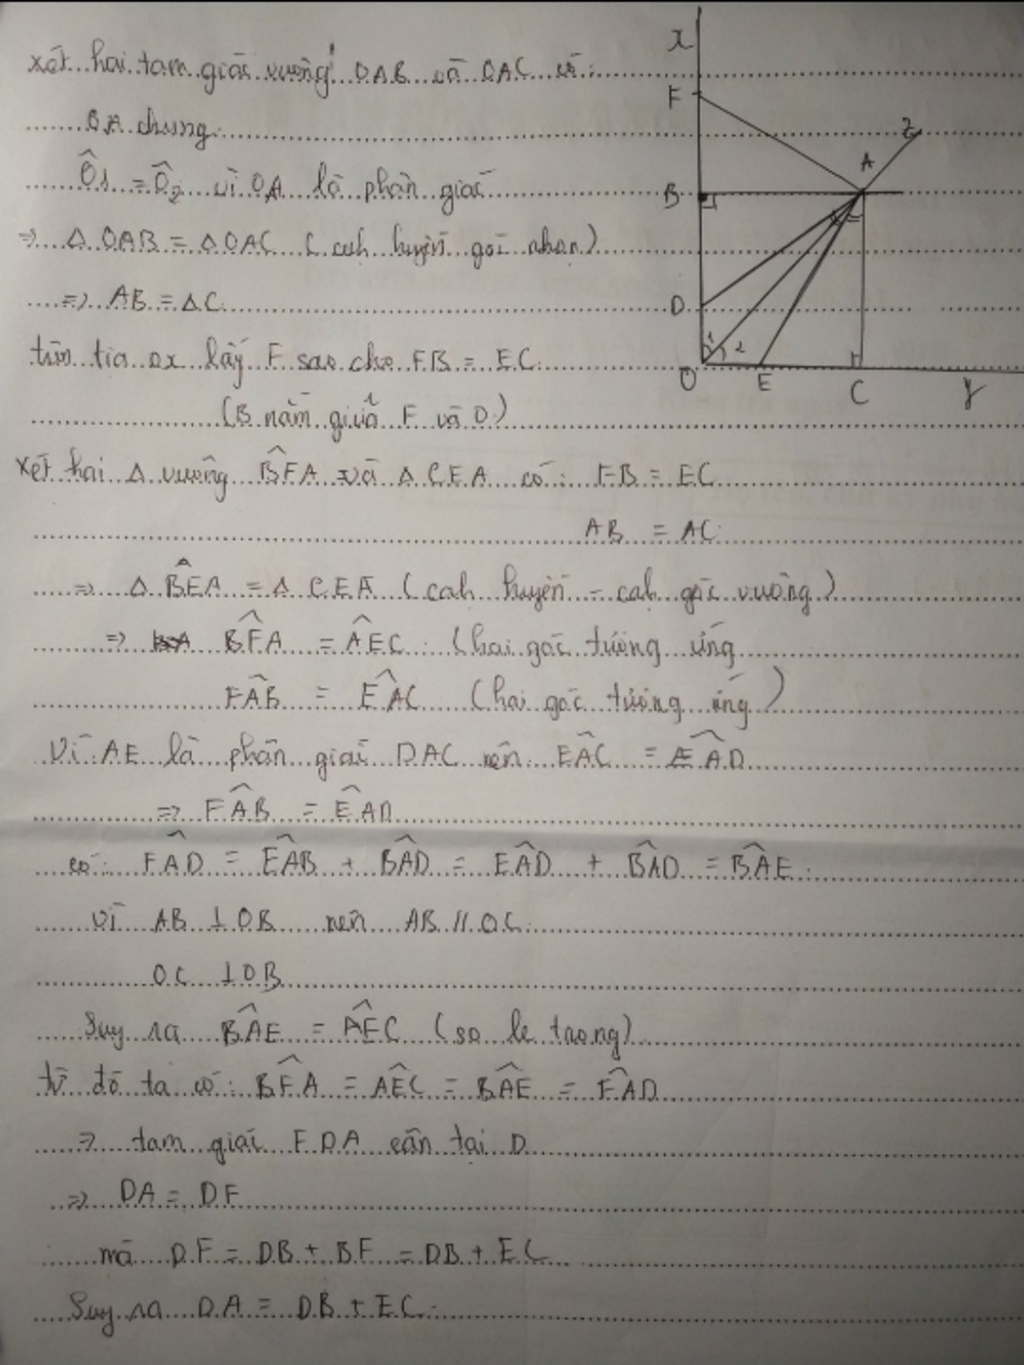 xét hai tam giác vuông OAB và OAC có:
OA chung
Ô1 = Ô2 vì OA là phân giác
=> Δ OAB = Δ OAC (cah huyền góc nhọn)
=> AB = AC
trên tia ox lấy F sao cho FB = EC
(B nằm giữa F và O)
xét hai Δ vuông BFA và Δ CEA có: FB = EC
AB = AC
=> Δ BEA = Δ CEA (cah huyền - cah góc vuông)
=> BFA = AEC (hai góc tương ứng
FAB = EAC (hai góc tương ứng)
Vì AE là phân giác DAC nên EAC = EAD
=> FAB = EAD
có: FAD = EAB + BAD = EAD + BAD = BAE
vì AB ⊥ OB nên AB // OC
OC ⊥ OB
Suy ra BAE = AEC (so le trong)
từ đó ta có: BFA = AEC = BAE = FAD
=> tam giác FDA cân tại D
=> DA = DF
mà DF = DB + BF = DB + EC
Suy ra DA = DB + EC
x
F
z
A
B
D
1 2
O E C y